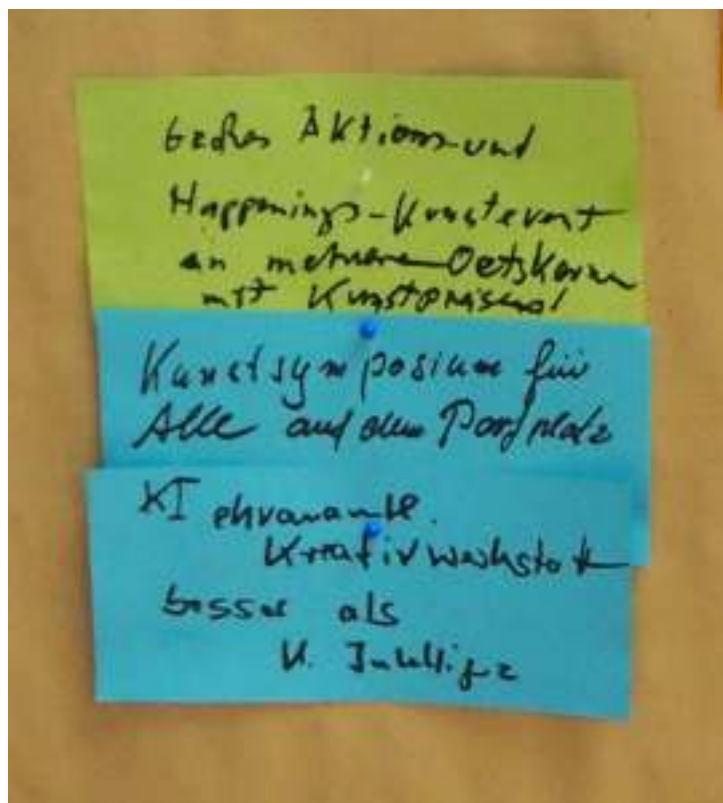 Großes Aktions-und
Happenings-Kunstevent
an mehreren Ortskernen
mit Kunstpreisen!
Kunstsymposium für
Alle auf dem Dorfplatz
KI
Kreativwerkstatt
besser als
K. Intelligenz